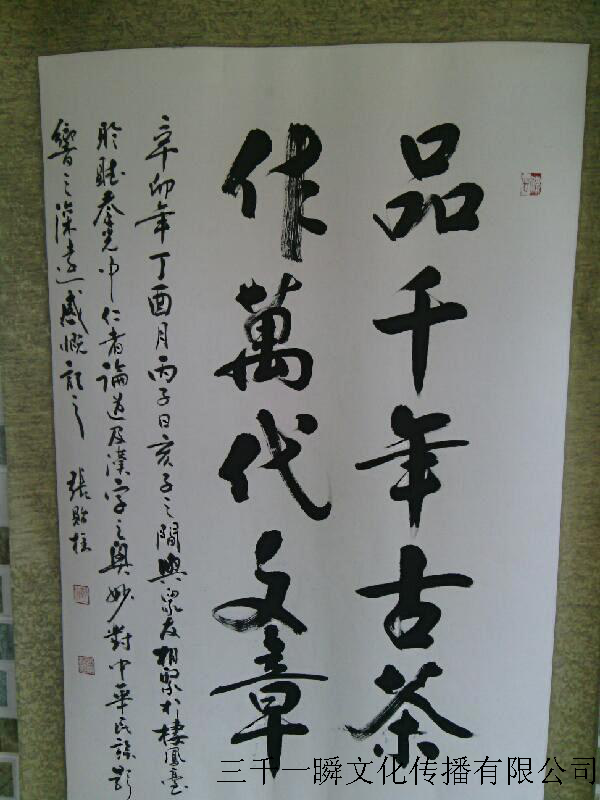 品千年古茶
作萬代文章
辛卯年丁酉月丙子日亥子之間與眾友相聚於棲鳳臺
聆聽 中仁者論道及漢字之奧妙對中華民族影
響之深遠感慨記之 張貽柱
三千一瞬文化传播有限公司